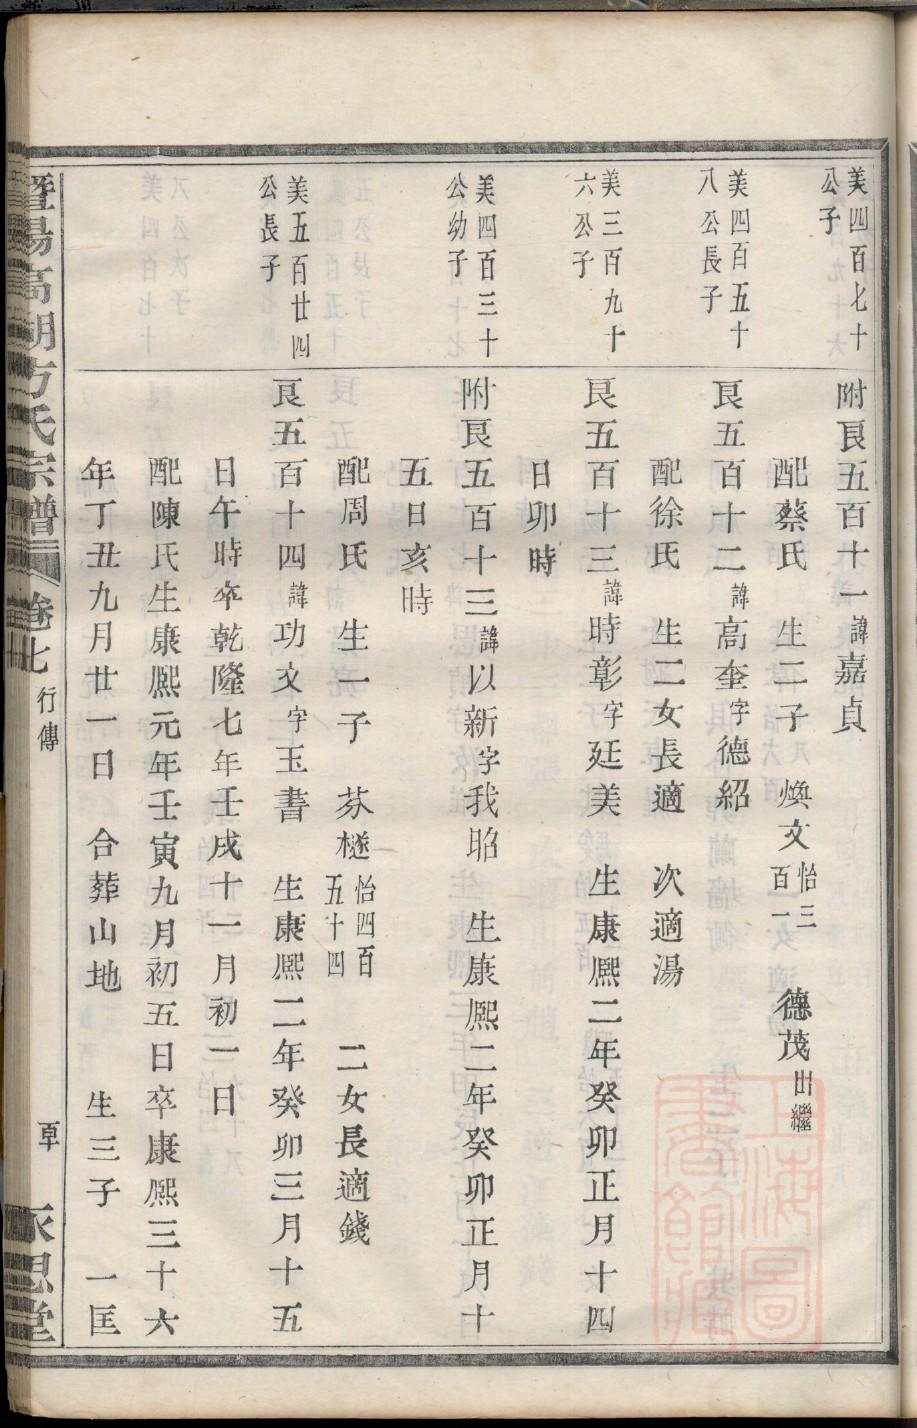 美四百七十
公子
附艮五百十一諱嘉貞
配蔡氏 生二子 煥文怡三百一 德茂出繼
美四百五十
八公長子
艮五百十二諱高奎字德紹
配徐氏 生二女長適 次適湯
美三百九十
六公子
艮五百十三諱時彰字廷美 生康熙二年癸卯正月十四
日卯時
美四百三十
公幼子
附艮五百十三諱以新字我昭 生康熙二年癸卯正月十
五日亥時
配周氏 生一子 芬檖怡四百五十四 二女長適錢
美五百廿四
公長子
艮五百十四諱功文字玉書 生康熙二年癸卯三月十五
日午時卒乾隆七年壬戌十一月初一日
配陳氏生康熙元年壬寅九月初五日卒康熙三十六
年丁丑九月廿一日 合葬山地 生三子 一匡
暨陽高湖方氏宗譜 卷七 行傳 永思堂
上海圖書館藏